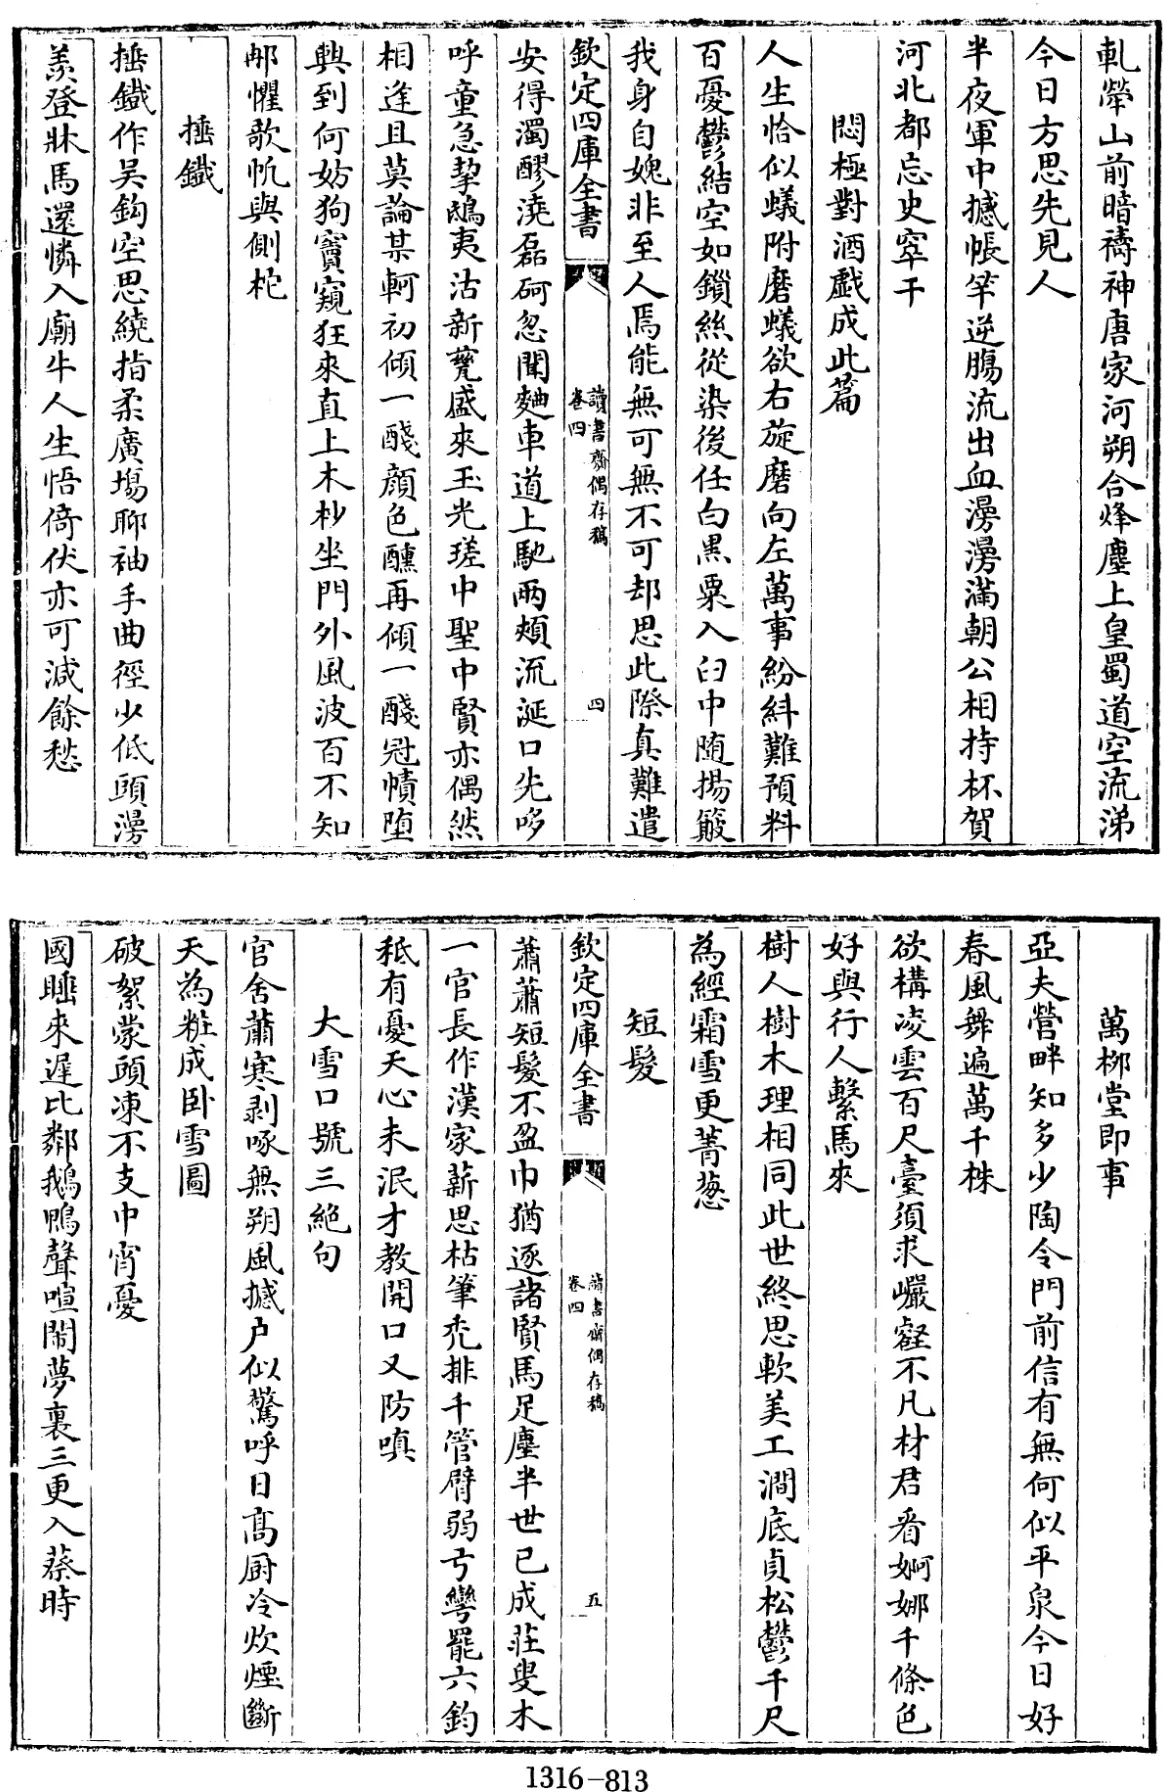 軋犖山前暗禱神唐家河朔合烽塵上皇蜀道空流涕
今日方思先見人
半夜軍中撼帳竿逆腸流出血漫漫滿朝公相持杯賀
河北都忘史窣干
悶極對酒戲成此篇
人生恰似蟻附磨蟻欲右旋磨向左萬事紛糾難預料
百憂鬱結空如鎖絲從染後任白黒粟入臼中随揚簸
我身自媿非至人焉能無可無不可却思此際真難遣
欽定四庫全書
讀書齋偶存稿
卷四
四
安得濁醪澆磊砢忽聞麯車道上馳兩頰流涎口先哆
呼童急挈鴟夷沽新甕盛來玉光瑳中聖中賢亦偶然
相逢且莫論某軻初傾一醆顔色醺再傾一醆冠幘堕
興到何妨狗竇窺狂來直上木杪坐門外風波百不知
郍懼歌帆與側柁
捶鐵
捶鐵作吴鈎空思繞指柔廣塲聊袖手曲徑少低頭漫
羨登牀馬還憐入廟牛人生悟倚伏亦可減餘愁
萬栁堂即事
亞夫營畔知多少陶令門前信有無何似平泉今日好
春風舞遍萬千株
欲構凌雲百尺臺須求巗壑不凡材君看婀娜千條色
好與行人繫馬來
樹人樹木理相同此世終思軟美工澗底貞松鬱千尺
為經霜雪更菁葱
短髮
欽定四庫全書
讀書齋偶存稿
卷四
五
蕭蕭短髮不盈巾猶逐諸賢馬足塵半世已成莊叟木
一官長作漢家薪思枯筆禿排千管臂弱弓彎罷六鈞
秪有憂天心未泯才教開口又防嗔
大雪口號三絶句
官舍蕭寒剥啄無朔風撼户似驚呼日髙厨冷炊煙斷
天為粧成卧雪圖
破絮蒙頭凍不支巾宵憂
國睡來遲比鄰鵝鴨聲喧閙夢裏三更入蔡時
1316-813